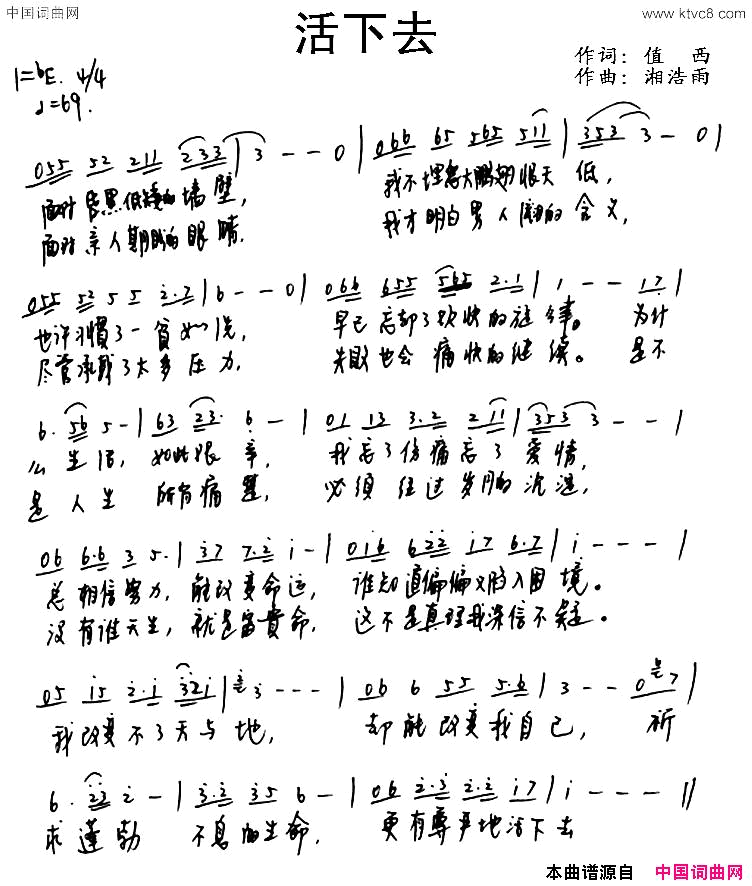 中国词曲网
www.ktvc8.com
活下去
作词：值 西
作曲：湘浩雨
1=bE. 4/4
♩=69.
055 52 211 233 | 3 - - 0 | 066 65 565 511 | 353 3 - 0 |
面对 黑 低矮的墙壁， 我不埋怨大鹏翅恨天低，
面对亲人期盼的眼睛. 我才明白男人的含义，
055 52 5 5 2·7 | 6 - - 0 | 066 655 565 2·1 | 1 - - 17 |
也许习惯了一贫如洗 早已忘却了欢快的旋律。 为什
尽管承载了太多压力， 失败也会痛快的继续。 是不
6· 56 5 - | 63 23· 6 - | 01 13 3·2 2 11 | 353 3 - - |
么生活，如此艰辛， 我忘了伤痛忘了爱情，
是人生 所有痛楚， 必须经过岁月的沉淀，
06 6·6 3 5· | 37 7·2 i - | 016 622 i7 6·7 | i - - - |
总相信努力，能改变命运， 谁知道偏偏又陷入困境。
没有谁天生，就是富贵命， 这不是真理我深信不疑。
05 i5 2·i 32i | 3 - - - | 06 6 55 5·6 | 3 - - 07 |
我改变不了天与地， 却能改变我自己， 祈
6· 23 2 - | 3·2 35 6 - | 06 2·3 2·2 i7 | i - - - ||
求蓬勃 不息的生命， 更有尊严地活下去
本曲谱源自 中国词曲网